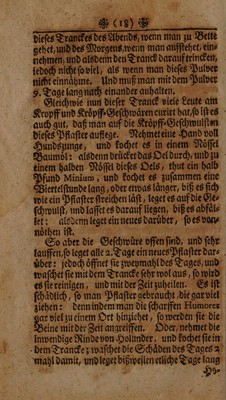 (18)
dieses Tranckes des Abends, wenn man zu Bette
gehet, und des Morgens, wenn man auffstehet, ein-
nehmen, und alsdenn den Tranck darauf trincken,
jedoch nicht so viel, als wenn man dieses Pulver
nicht einnähme. Und muß man mit dem Pulver
9. Tage lang nach einander anhalten.
Gleichwie nun dieser Tranck viele Leute am
Kropff und Kröpff-Geschwären curirt hat, so ist es
auch gut, daß man auf die Kröpff-Geschwulsten
dieses Pflaster auflege. Nehmet eine Hand voll
Hundszunge, und kochet es in einem Nössel
Baumöl: alsdenn drücket das Oel durch, und zu
einem halben Nössel dieses Oels, thut ein halb
Pfund Minium, und kochet es zusammen eine
Viertelstunde lang, oder etwas länger, biß es sich
wie ein Pflaster streichen läst, leget es auf die Ge-
schwulst, und lasset es darauf liegen, biß es abfäl-
let: alsdenn leget ein neues darüber, so es von-
nöthen ist.
So aber die Geschwüre offen sind, und sehr
lauffen, so leget alle 2. Tage ein neues Pflaster dar-
über: jedoch öffnet sie zweymahl des Tages, und
waschet sie mit dem Trancke sehr wol aus, so wird
es sie reinigen, und mit der Zeit zuheilen. Es ist
schädlich, so man Pflaster gebraucht, die gar viel
ziehen: denn indem man die scharffen Humores
gar viel zu einem Ort hinziehet, so werden sie die
Beine mit der Zeit angreiffen. Oder, nehmet die
inwendige Rinde von Holunder, und kochet sie in
dem Trancke; waschet die Schäden des Tages 2
mahl damit, und leget bißweilen etliche Tage lang